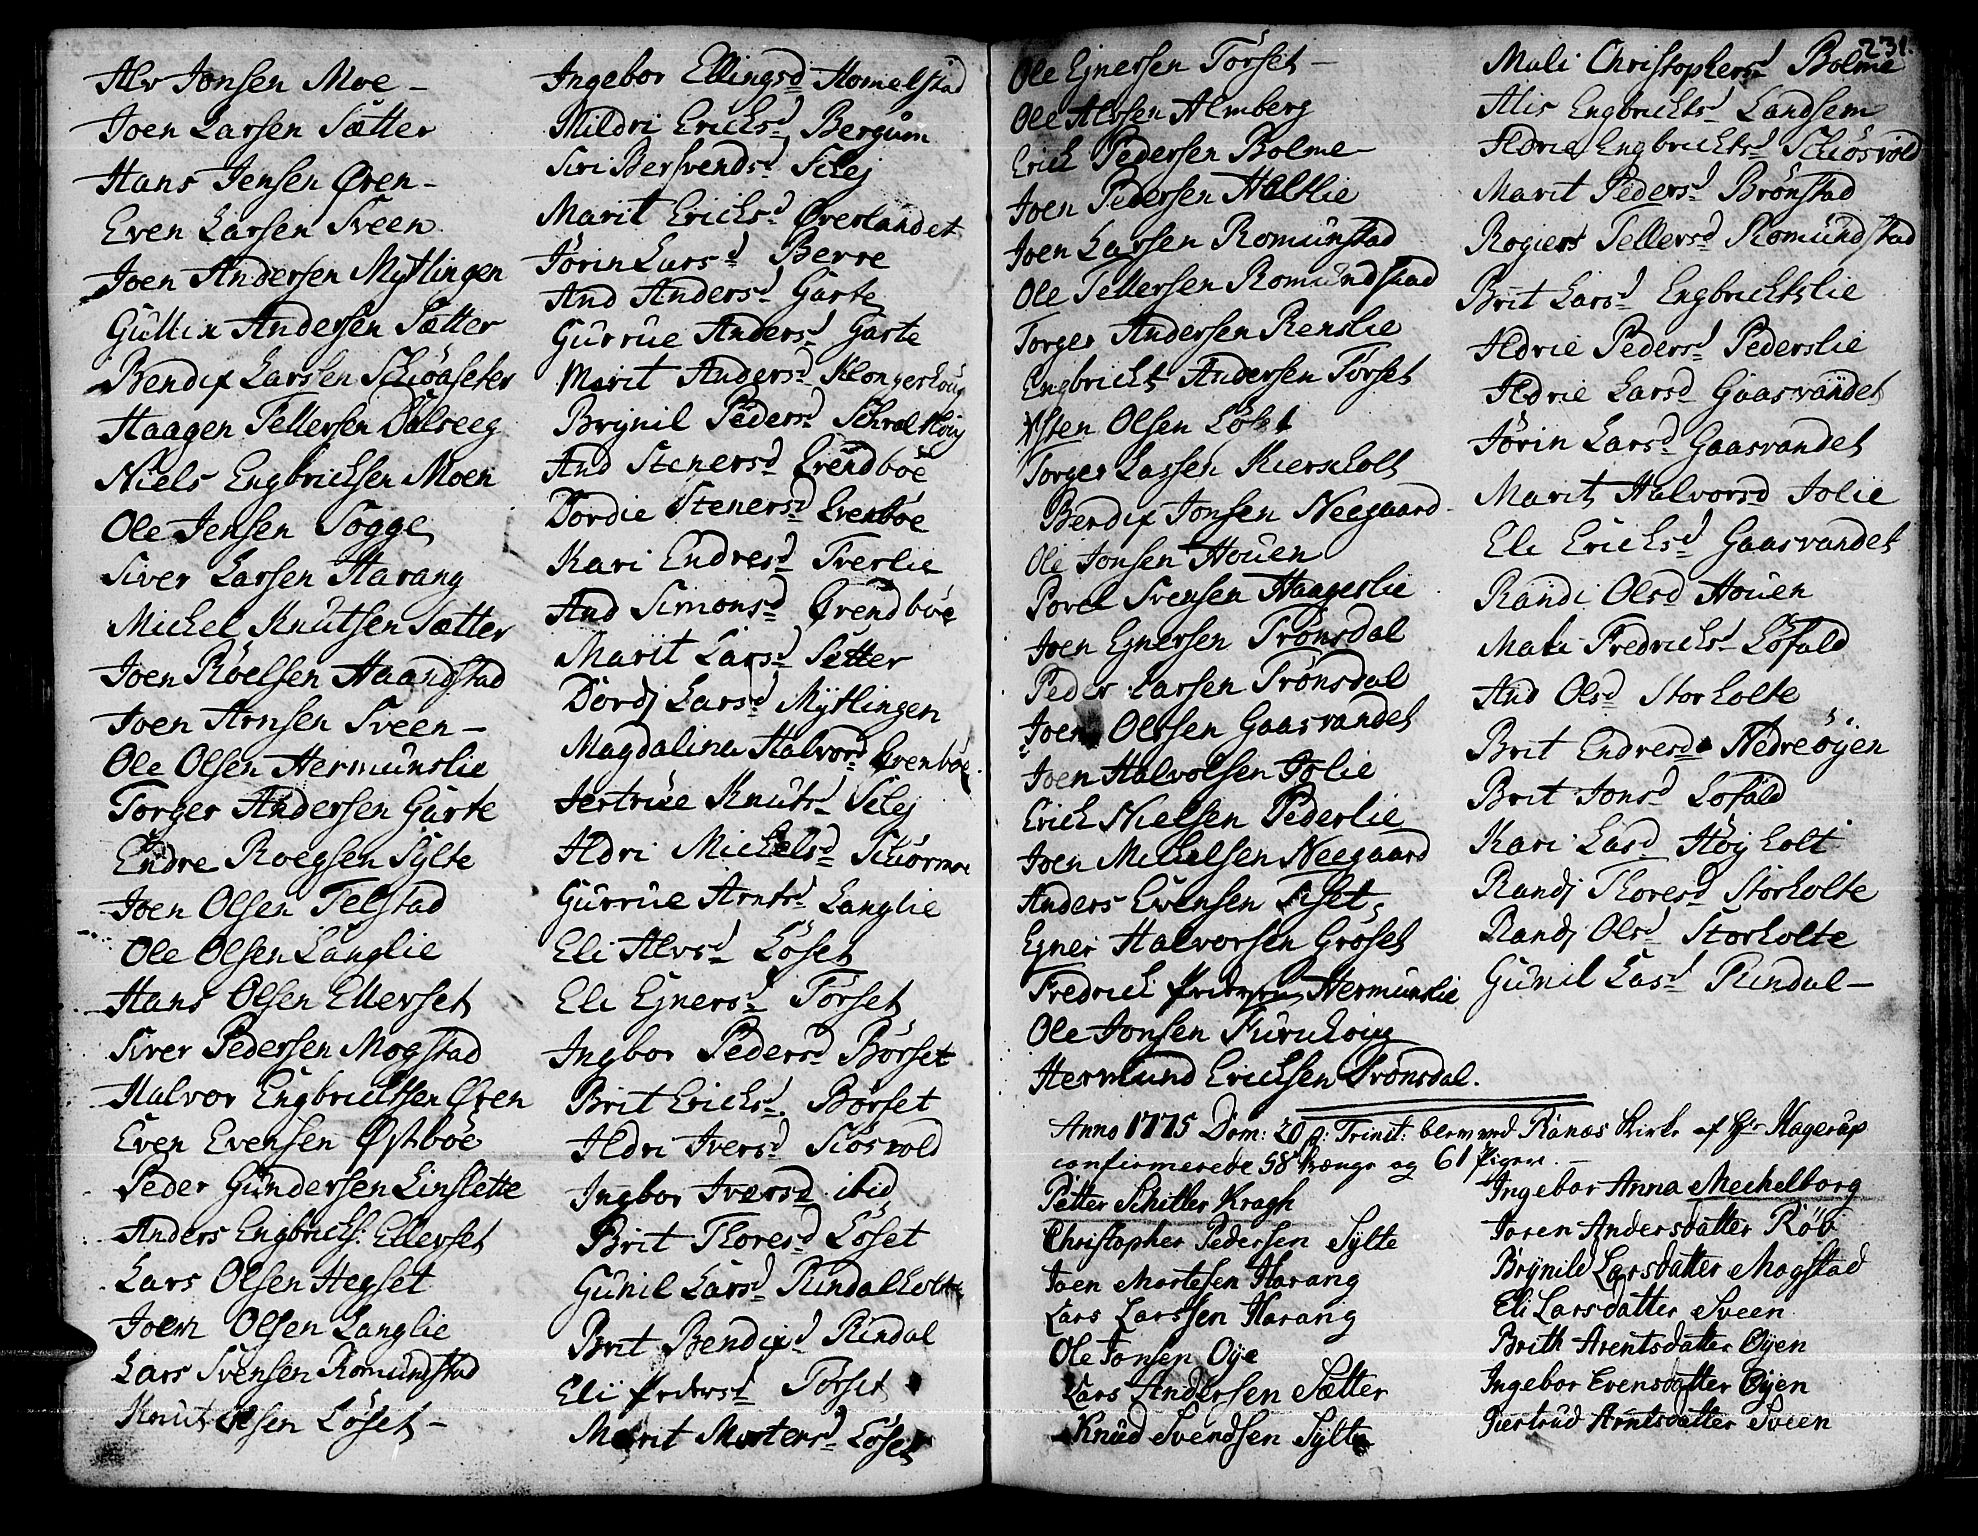 Alv Jonsen Moe -
Joen Larsen Sætter
Hans Jensen Øren -
Even Larsen Sveen
Joen Andersen Mÿtlingen
Gullix Andersen Sætter
Bendix Larsen Schiöaseter
Haagen Tellefsen Dalseeg
Niels Engbrichsen Moen
Ole Jensen Sogge
Siver Larsen Harang
Michel Knutsen Sætter
Joen Röelsen Haandstad
Joen Arnsen Sveen -
Ole Olsen Hermunslie
Torger Andersen Garte
Endre Roegsen Sylte
Joen Olsen Telstad
Ole Olsen Langlie
Hans Olsen Ellevset
Siver Pedersen Mogstad
Halvor Engbrichtsen Øren
Even Evensen Østböe
Peder Gundersen Linslette
Anders Engbrichs: Ellevset
Lars Olsen Hegset
Joen Olsen Langlie
Lars Svensen Romundstad
Knut Olsen Löset -
Ingebor Ellingsd Homelstad
Mildri Erichsd Bergum
Siri Bersvendsd Sley
Marit Erichsd Øverlandet
Jörin Larsd Berre
And Andersd Garte
Gurrue Andersd Garte
Marit Andersd Klongerhoug
Brÿnil Pedersd
And Stenersd Evendböe
Dordie Stenersd Evenböe
Kari Endresd Tverlie
And Simonsd Grendböe
Marit Larsd Sætter
Dordj Larsd Mÿtlingen
Magdalina Halvord Grenböe
Jertrue Knutsd Sley
Aldri Michelsd
Gurrue Arntsd Langlie
Eli Alvsd Löset
Eli Ejnersd Torset
Ingbor Pedersd Börset
Brit Erichsd Börset
Aldri Iversd Siösvold
Ingbor Iversd ibid
Brit Thoresd Löset
Gunil Larsd Rindalholt
Brit Bendixd Rindal
Eli Pedersd Torset
Marit Mortensd Löset
231.
Ole Ejnersen Torset -
Ole Alvsen Almberg
Erich Pedersen Bolme -
Joen Pedersen Haltlie
Joen Larsen Romunstad
Ole Tellefsen Romundstad
Torger Andersen Renslie
Engbricht Andersen Torset
Østen Olsen Löset
Torger Lassen Kiersholt
Bendix Jonsen Neegaard -
Ole Jonsen Houen
Povel Svensen Haageslie
Joen Ejnersen Trönsdal
Peder Larsen Trönsdal
Joen Olsen Gaasvandet
Joen Halvolsen Jolie
Erich Nielsen Pederlie
Joen Michelsen Neegaard
Anders Evensen Siset
Egner Halvorsen Gröset
Fredrich Pedersen Hermunslie
Ole Jonsen Furuhoug
Hermund Erichsen Trönsdal.
Mali Christophersd Bolme
Alis Engbrichtsd Landsem
Aldrie Engbrichtsd Schiösvold
Marit Pedersd Brönstad
Rogiers Tellevsd Romundstad
Brit Larsd Engbrichtslie
Aldrie Pedersd Pederslie
Aldrie Larsd Gaasvandet
Jörin Larsd Gaasvandet
Marit Halvorsd Jolie
Eli Erichsd Gaasvandet
Randi Olsd Houen
Mali Fredrichsd Löfald
And Olsd Storholte
Brit Endresd Nedreöÿen
Brit Jonsd Löfald
Kari Lasd Höyholt
Randj Thoresd Storholte
Randj Olsd Storholte
Gunil Lasd Rindal -
Anno 1775 Dom: 20 p: Trinit: blev ved Ranæs Kirke af Hr Hagerup
confirmerede 58 Drænge og 61 Piger. -
Petter Schiller Kragh
Christopher Pedersen Sylte
Joen Mortesen Harang
Lars Larssen Harang
Ole Jonsen Oye
Lars Andersen Sætter
Knud Svendsen Sylte
Ingebor Anna Mechelborg
Joren Andersdatter Röv
Brÿnild Larsdatter Mogstad
Eli Larsdatter Sveen
Brith Arentsdatter Öyen
Ingebor Evensdatter Öyen
Giertrud Arntsdatter Sveen